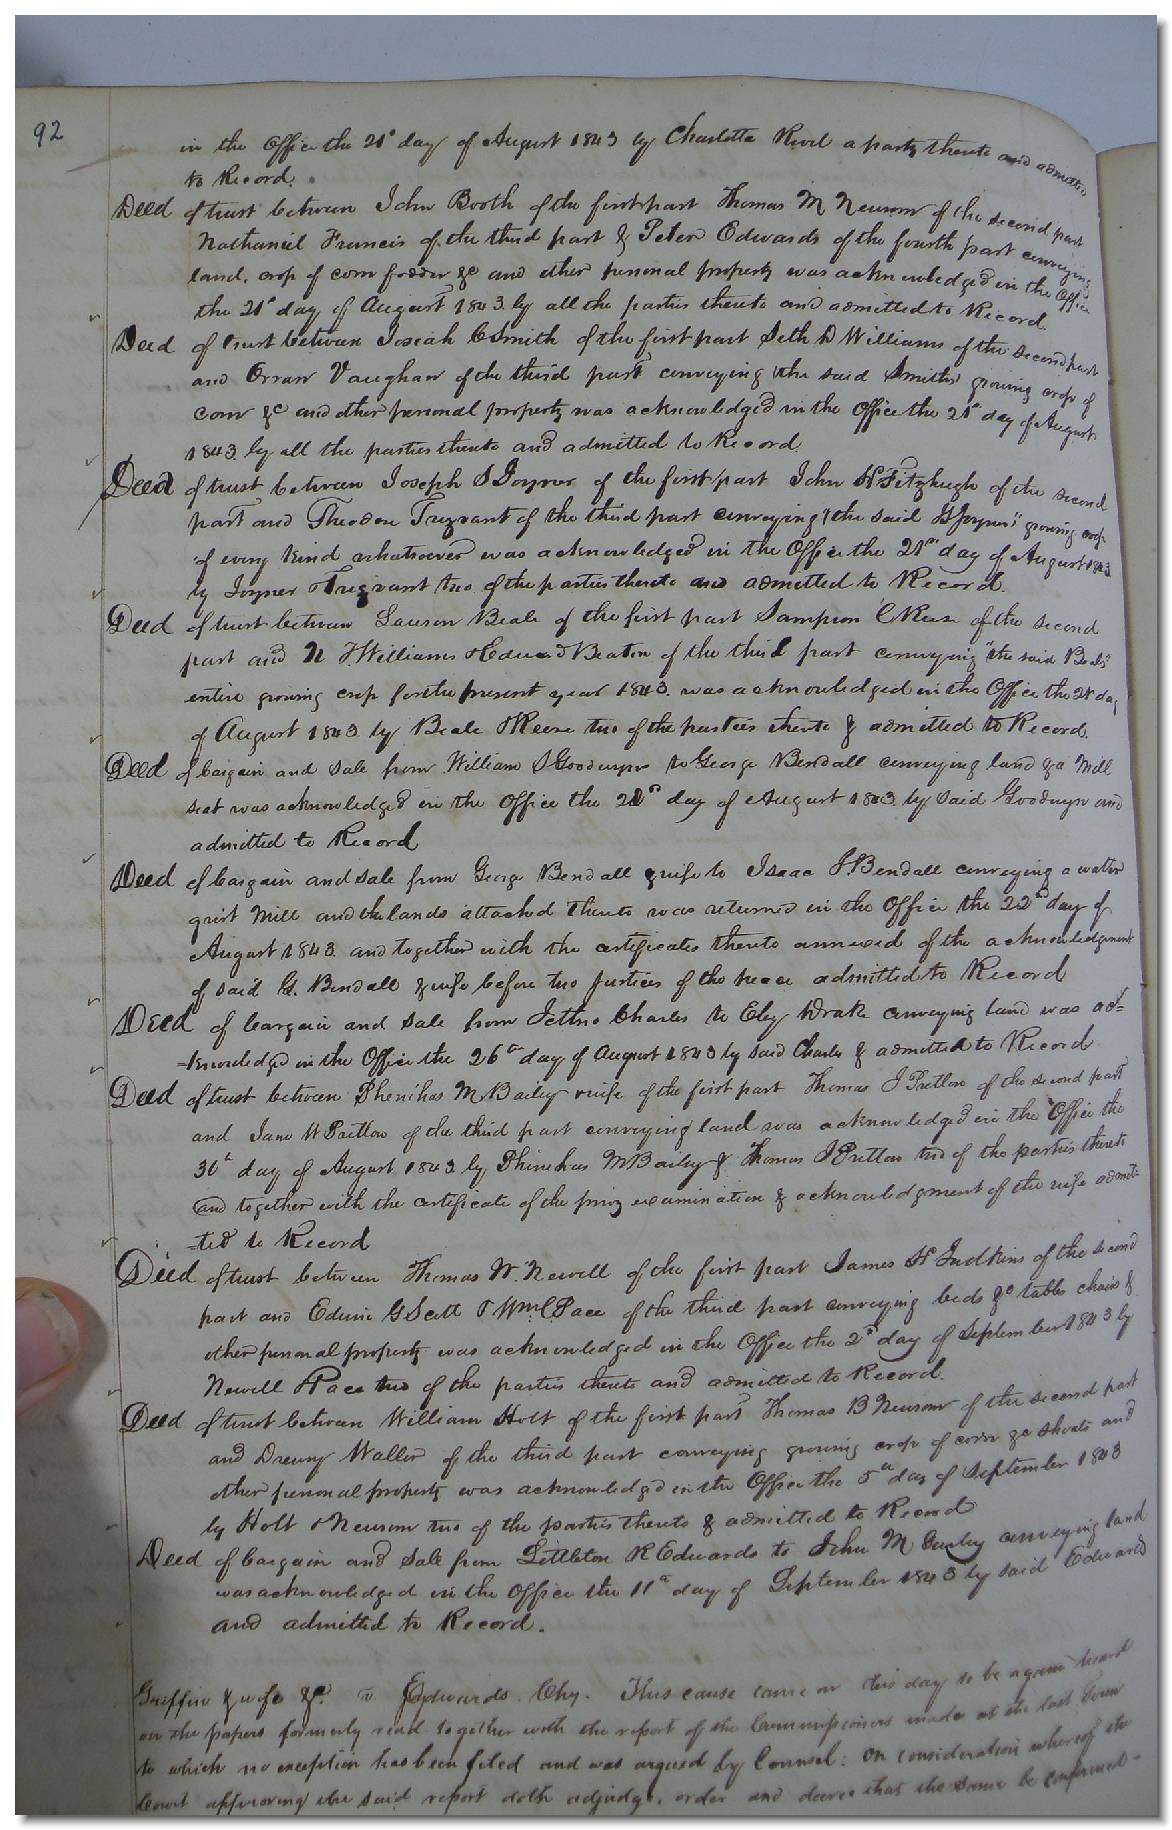 92
in the Office the 21st day of August 1843 by Charlotte a party thereto and admitted
to Record.
Deed of trust between John Booth of the first part Thomas M Newsom of the second part
Nathaniel Francis of the third part & Peter Edwards of the fourth part conveying
land, crop of corn fodder &c and other personal property was acknowledged in the Office
the 21st day of August 1843 by all the parties thereto and admitted to Record.
Deed of trust between Josiah C Smith of the first part Seth D Williams of the second part
and Orran Vaughan of the third part conveying "the said Smiths" growing crop of
corn &c and other personal property was acknowledged in the Office the 21st day of August
1843 by all the parties thereto and admitted to Record.
Deed of trust between Joseph S Joyner of the first part John H Fitzhugh of the second
part and Theodore Trezvant of the third part conveying "the said Joyners" growing crop
of every kind whatsoever was acknowledged in the Office the 21st day of August 1843
by Joyner & Trezvant two of the parties thereto and admitted to Record.
Deed of trust between Lawson Beale of the first part Sampson C Reese of the second
part and N Williams & Edward Beaton of the third part conveying "the said Beals"
entire growing crop for the present year 1843. was acknowledged in the Office the 21st day
of August 1843 by Beale & Reese two of the parties thereto & admitted to Record.
Deed of bargain and sale from William S Goodwyn to George Bendall conveying land & a Mill
seat was acknowledged in the Office the day of August 1843 by said Goodwyn and
admitted to Record
Deed of bargain and sale from George Bendall & wife to Isaac J Bendall conveying a water
grist Mill and the lands attached thereto was returned in the Office the 22nd day of
August 1843 and together with the certificates thereto annexed of the acknowledgment
of said G. Bendall & wife before two justices of the peace admitted to Record
Deed of bargain and sale from Jethro Charles to Eley Drake conveying land was ac=
=knowledged in the Office the 26th day of August 1843 by said Charles & admitted to Record
Deed of trust between Phenihas M Bailey & wife of the first part Thomas J Pretlow of the second part
and Jane W Pretlow of the third part conveying land was acknowledged in the Office the
30th day of August 1843 by Phinehas M Bailey & Thomas J Pretlow two of the parties thereto
and together with the certificate of the privy examination & acknowledgment of the wife admit=
=ted to Record
Deed of trust between Thomas W. Newell of the first part James H Judkins of the second
part and Edwin G Scott & Wm C Pace of the third part conveying beds &c tables chairs &
other personal property was acknowledged in the Office the 2nd day of September 1843 by
Newell & Pace two of the parties thereto and admitted to Record.
Deed of trust between William Holt of the first part Thomas B Newsom of the second part
and Drewry Waller of the third part conveying growing crop of corn &c shoats and
other personal property was acknowledged in the Office the 5th day of September 1843
by Holt & Newsom two of the parties thereto & admitted to Record
Deed of bargain and sale from Littleton R Edwards to John M Gurley conveying land
was acknowledged in the Office the 11th day of September 1843 by said Edwards
and admitted to Record.
Griffin & wife &c. v Edwards. Chy. This cause came on this day to be again heard
on the papers formerly read together with the report of the Commissioners made at the last Term
to which no exception has been filed and was argued by Counsel: On consideration whereof the
Court approving the said report doth adjudge, order and decree that the same be confirmed